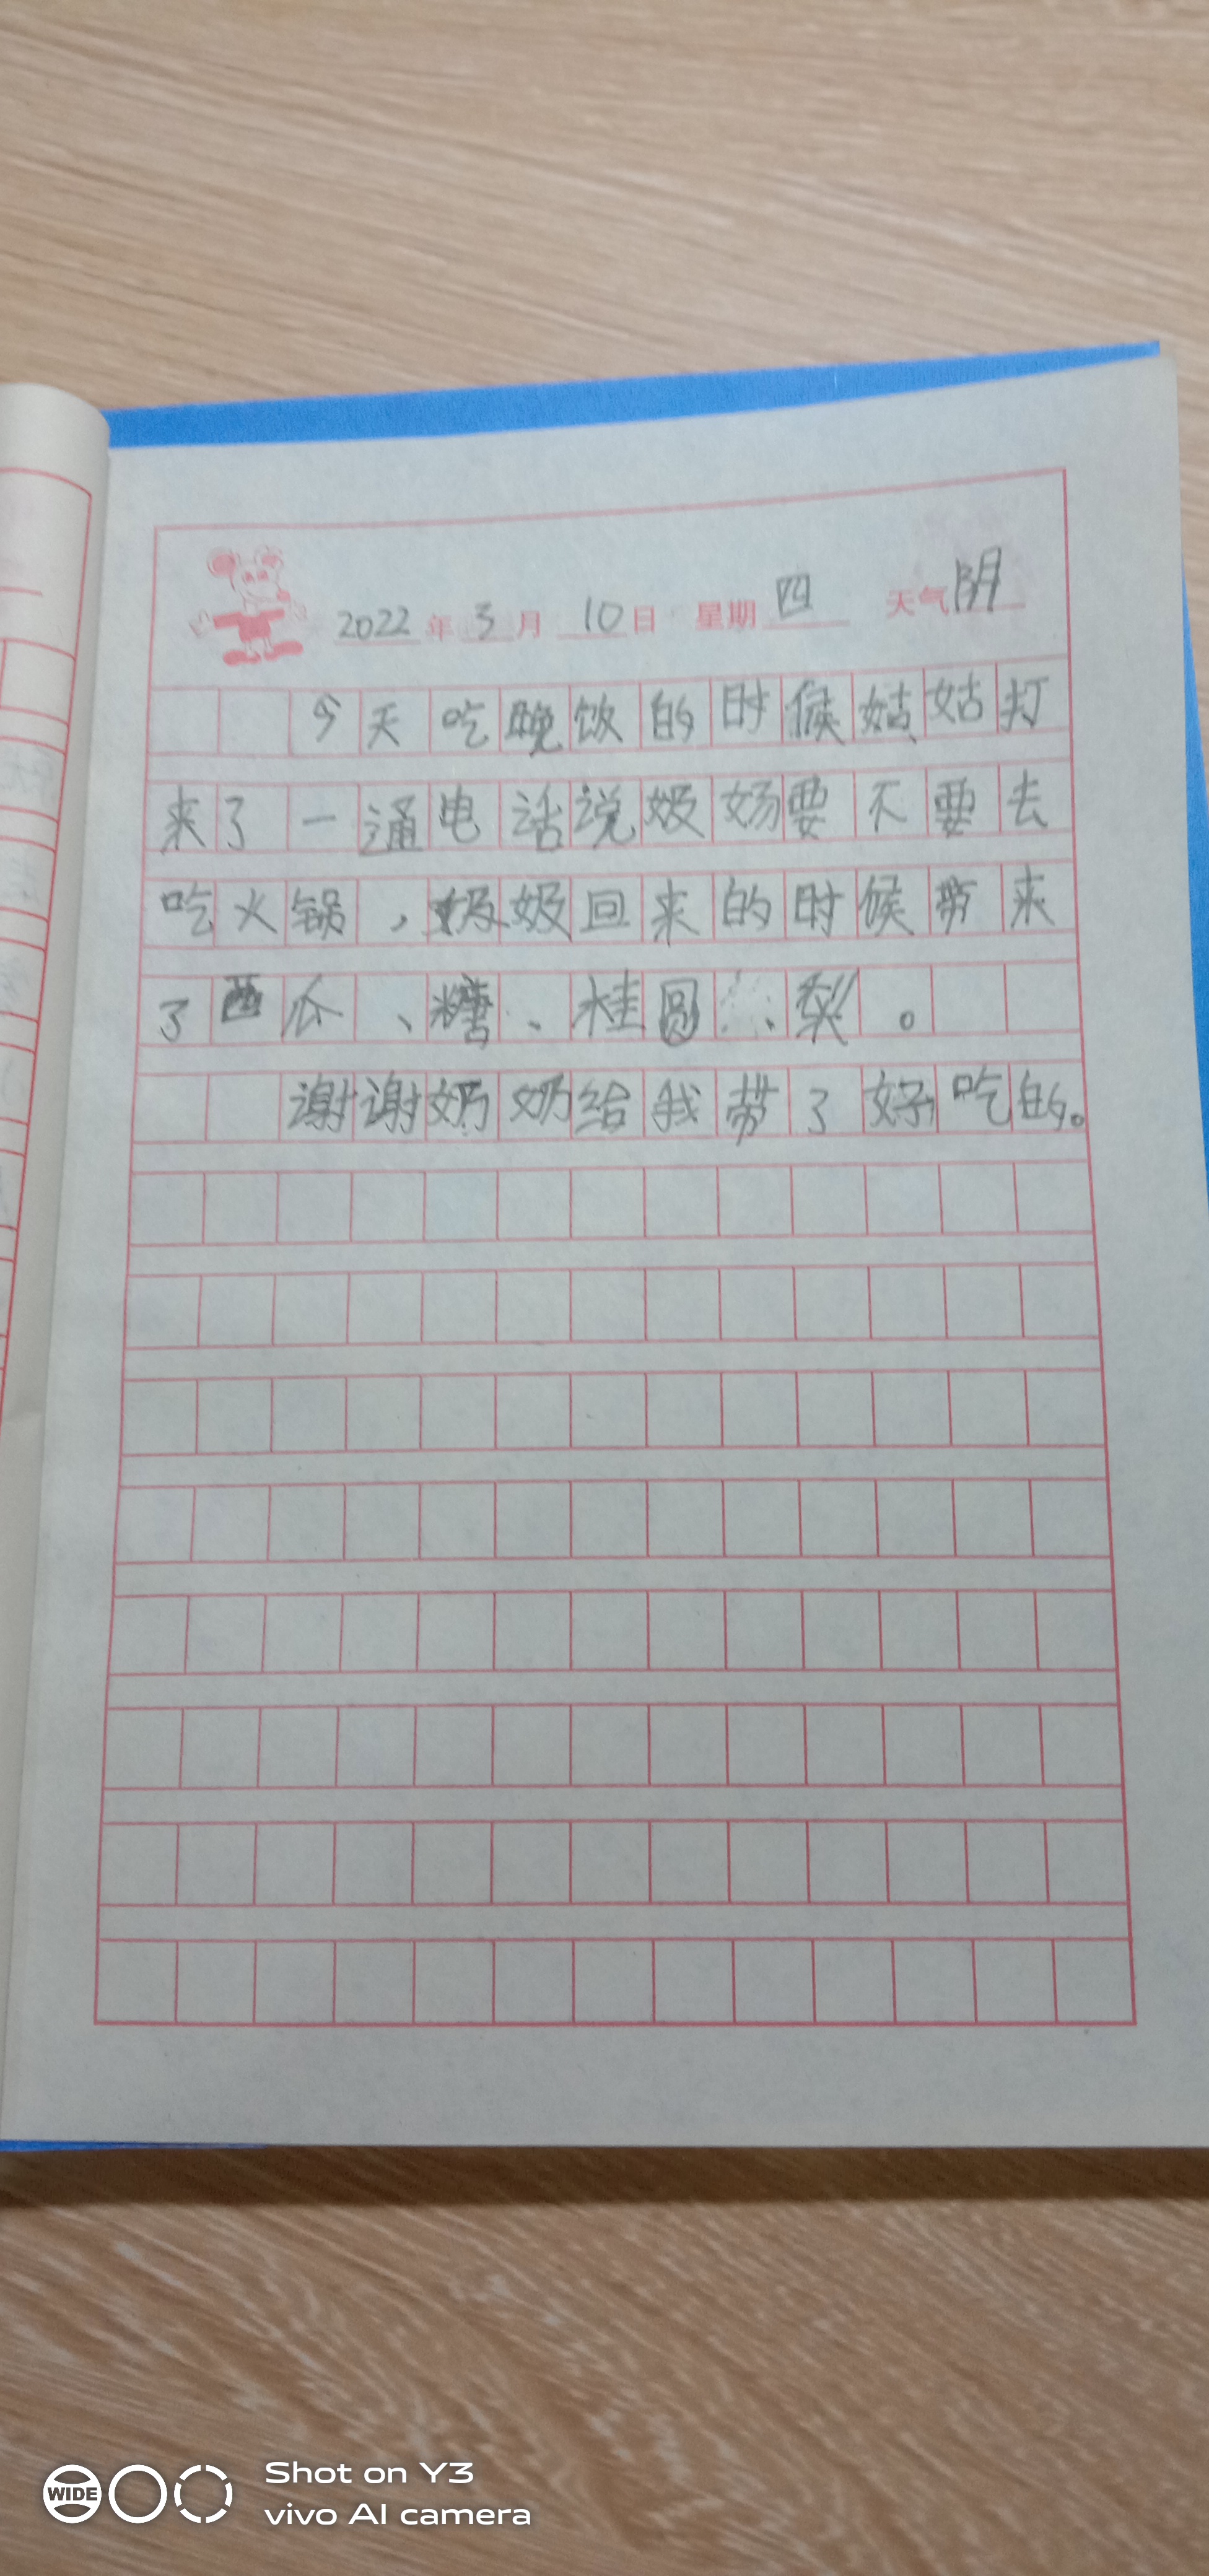 2022年3月10日 星期四 天气阴
今天吃晚饭的时候姑姑打
来了一通电话说奶奶要不要去
吃火锅，奶奶回来的时候带来
了西瓜、糖、桂圆、梨。
谢谢奶奶给我带了好吃的。
WIDE
Shot on Y3
vivo AI camera